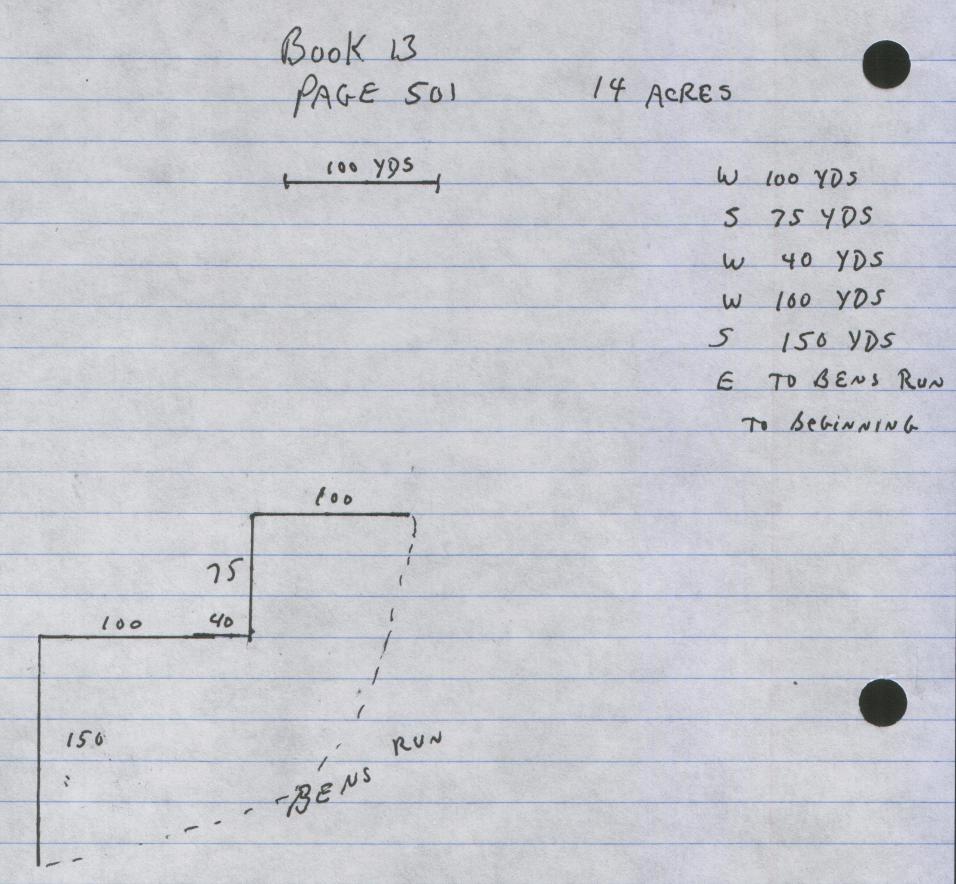 Book 13
PAGE 501
14 ACRES
100 YDS
W 100 YDS
S 75 YDS
W 40 YDS
W 100 YDS
S 150 YDS
E TO BENS RUN
TO BEGINNING
100
75
100 40
150
BENS RUN